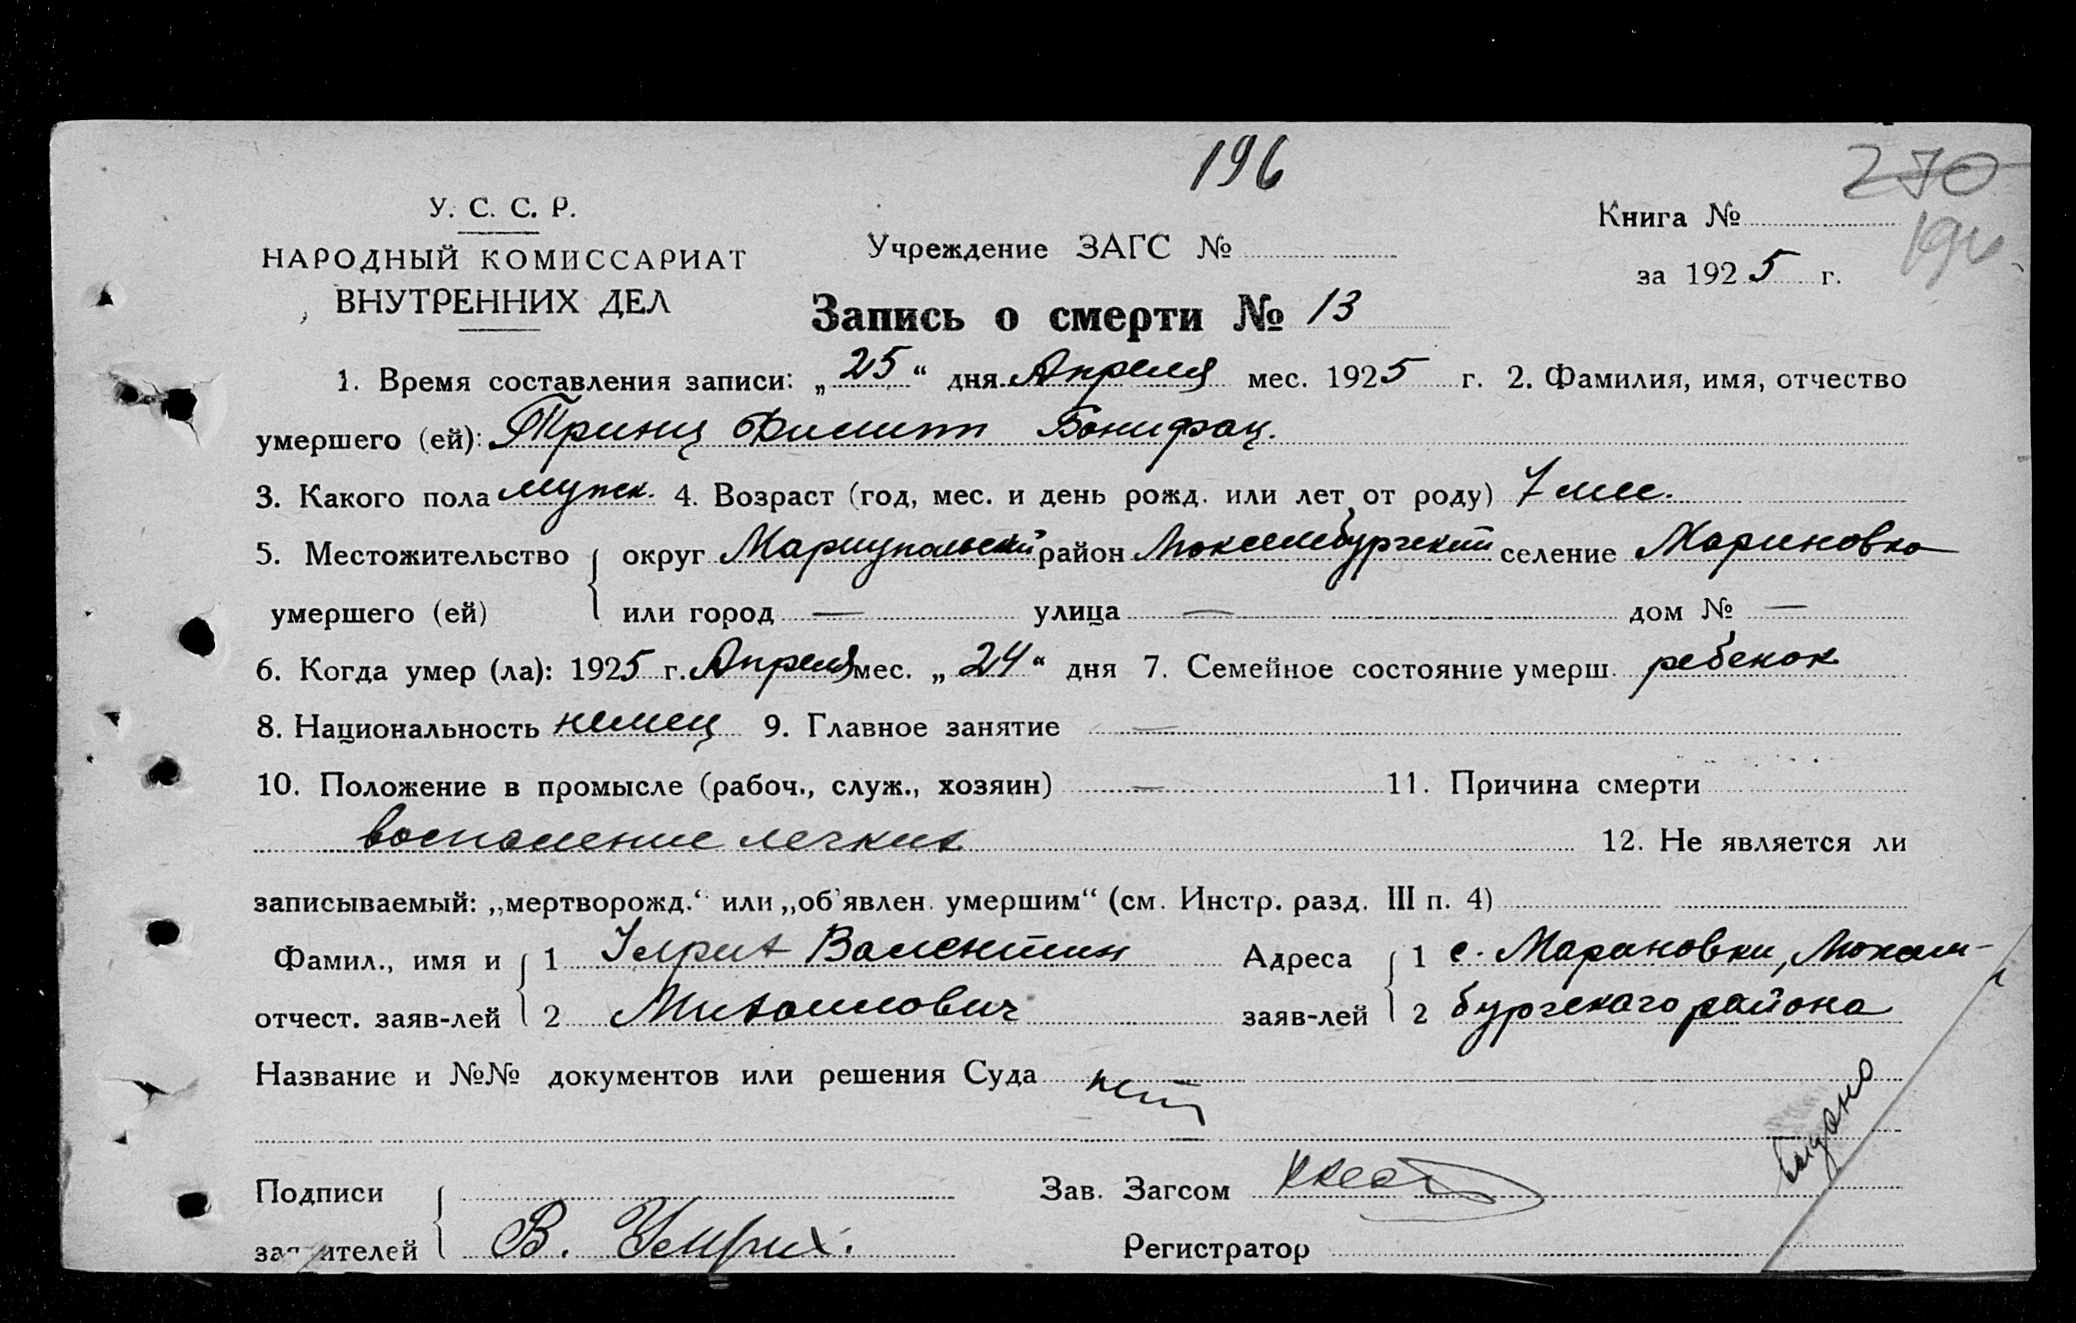 196
270
У. С. С. Р.
Книга №
НАРОДНЫЙ КОМИССАРИАТ
Учреждение ЗАГС №
за 1925 г.
ВНУТРЕННИХ ДЕЛ
Запись о смерти № 13
1. Время составления записи: „25“ дня Апреля мес. 1925 г. 2. Фамилия, имя, отчество
умершего (ей): Принц Филипп Бонифац.
3. Какого пола мужск. 4. Возраст (год, мес. и день рожд. или лет от роду) 7 мес.
5. Местожительство округ Мариупольский район Люксембургский селение Мариновка
умершего (ей) или город — улица — дом № —
6. Когда умер (ла): 1925 г. Апреля мес. „24“ дня 7. Семейное состояние умерш. ребенок
8. Национальность немец 9. Главное занятие —
10. Положение в промысле (рабоч., служ., хозяин) — 11. Причина смерти
воспаление легких 12. Не является ли
записываемый: „мертворожд.“ или „об'явлен умершим“ (см. Инстр. разд. III п. 4)
Фамил., имя и 1 Валентин Адреса 1 с. Мариновки, Люксем-
отчест. заяв-лей 2 Михайлович заяв-лей 2 бургского района
Название и №№ документов или решения Суда нет
выдано
Подписи Зав. Загсом
заявителей В.
Регистратор